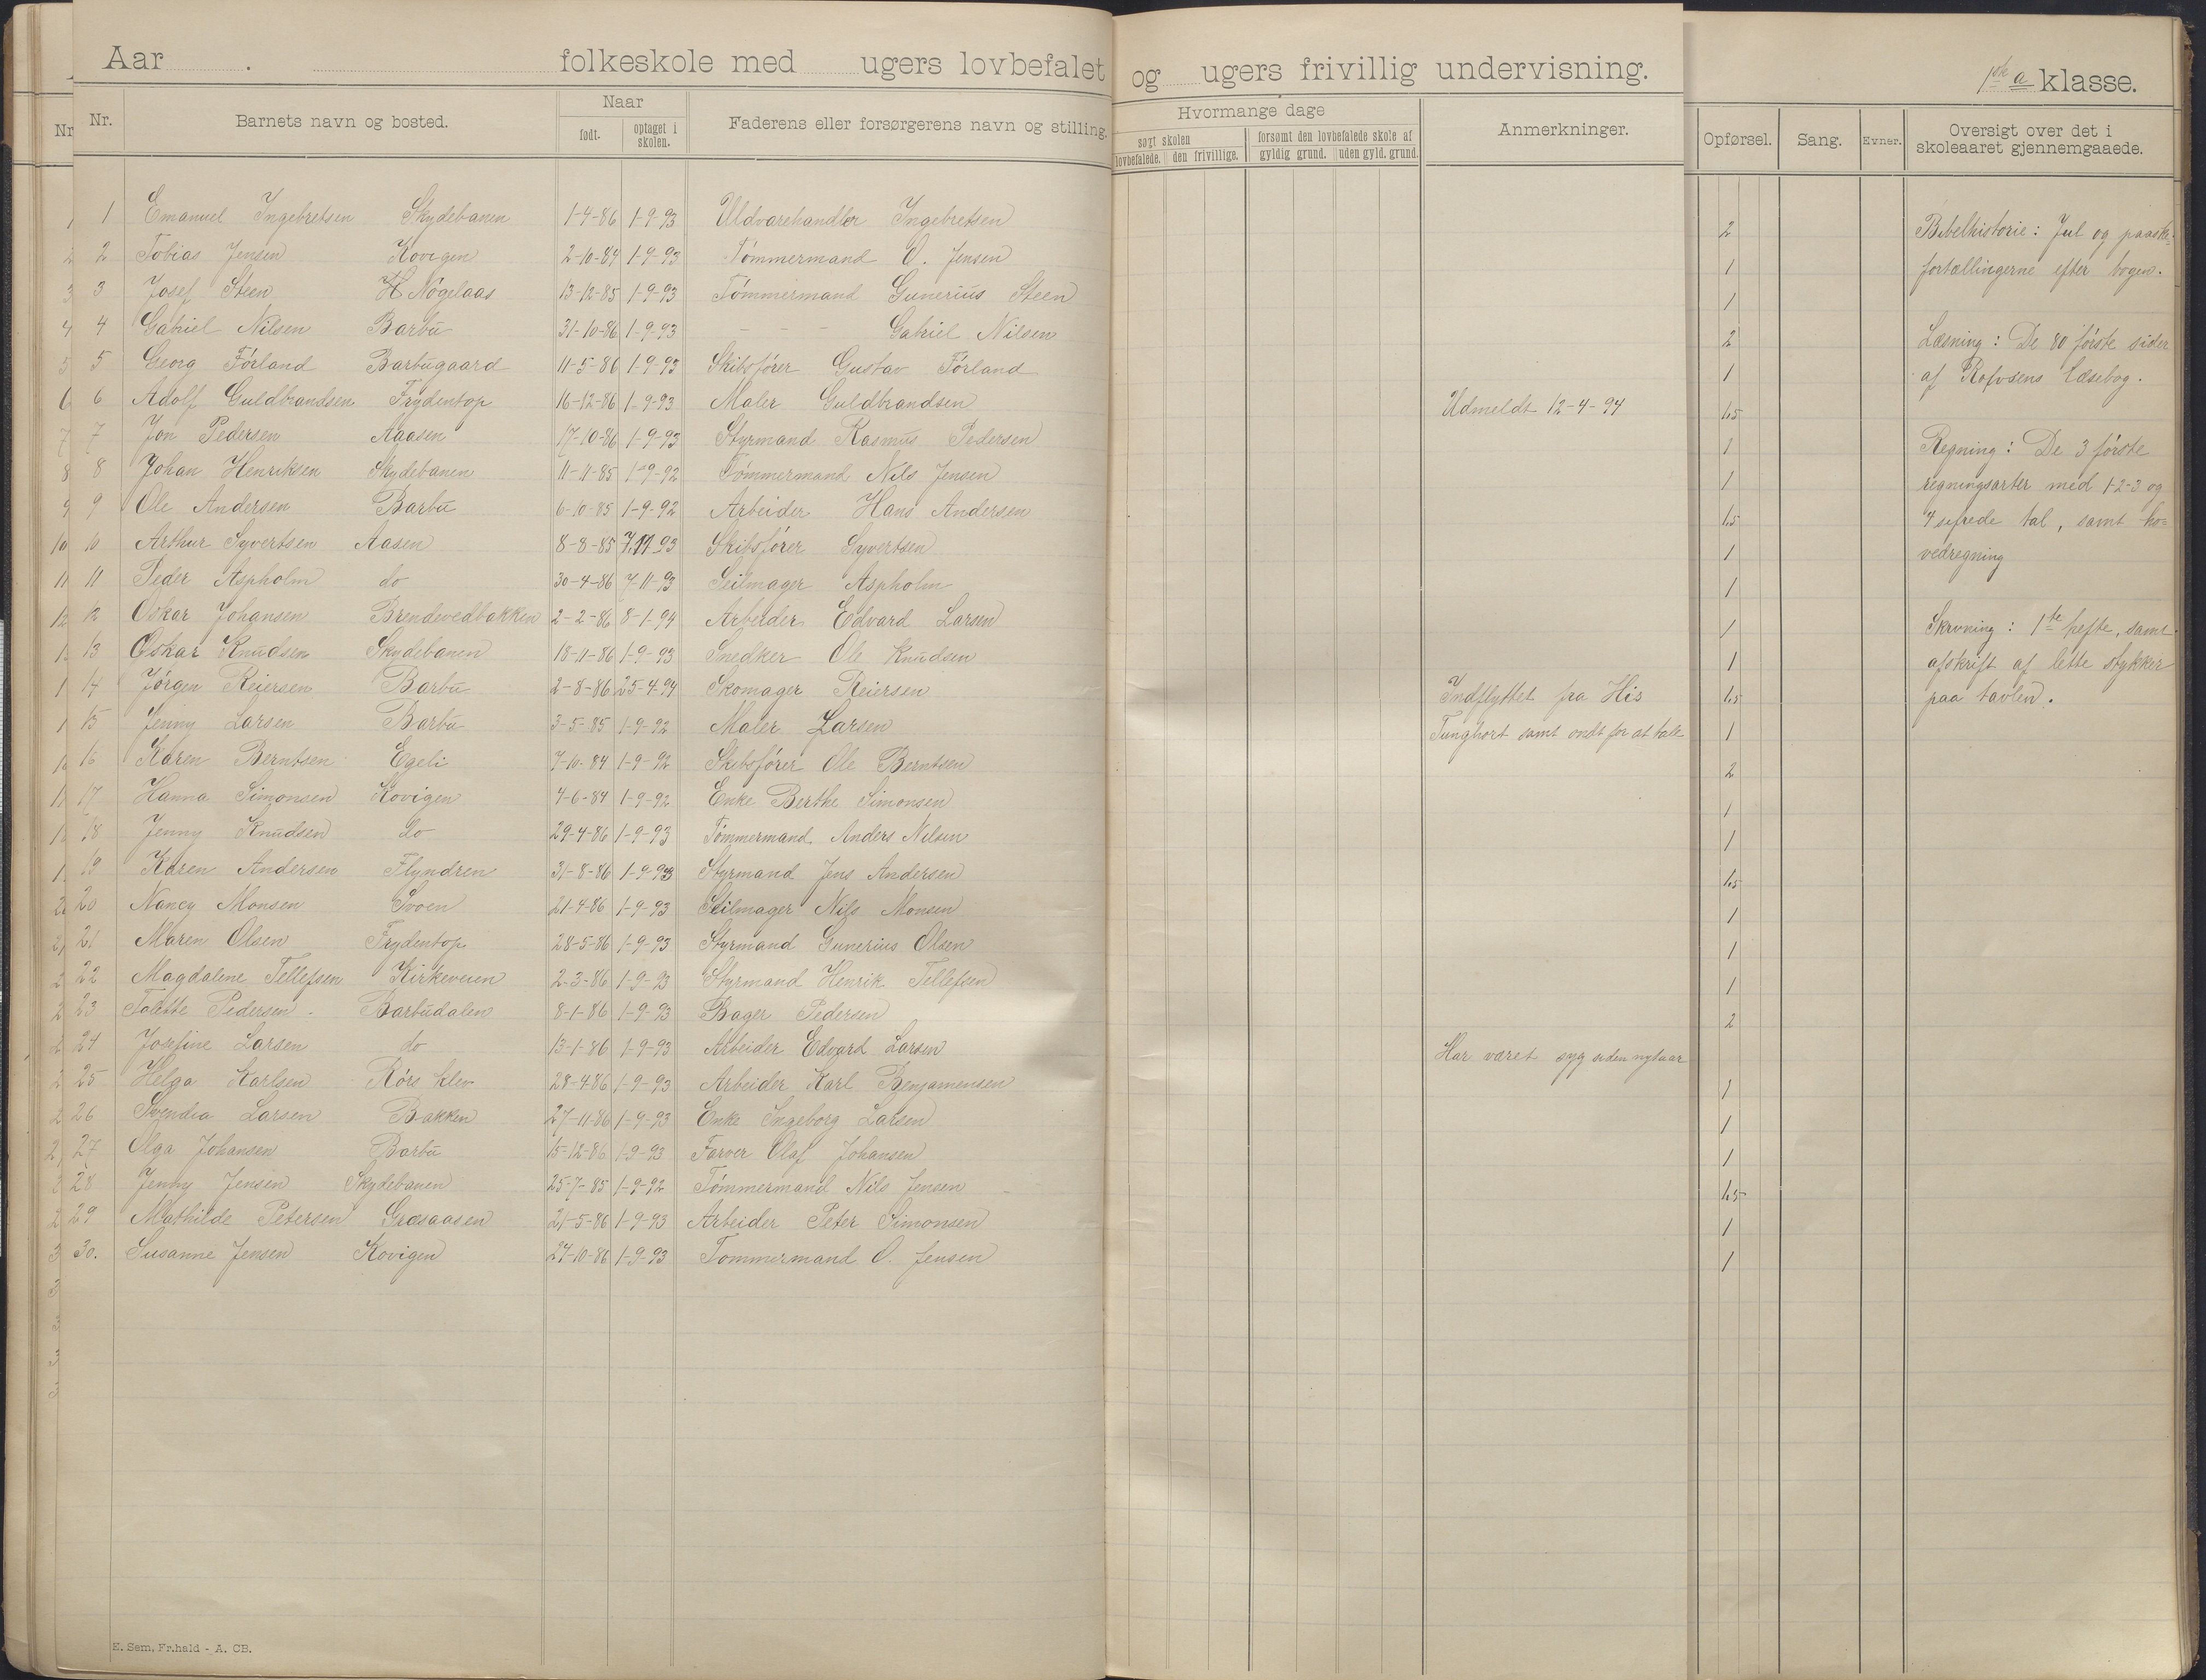 Aar . folkeskole med ugers lovbefalet og ugers frivillig undervisning. 1ste a klasse.
Nr. Barnets navn og bosted. Naar født. optaget i skolen. Faderens eller forsørgerens navn og stilling. Hvormange dage søgt skolen lovbefalede. den frivillige. forsømt den lovbefalede skole af gyldig grund. uden gyld. grund. Anmerkninger. Opførsel. Sang. Evner. Oversigt over det i skoleaaret gjennemgaaede.
1 Emanuel Ingebretsen Skydebanen 1-4-86 1-9-93 Uldvarehandler Ingebretsen 2
2 Tobias Jensen Kovigen 2-10-84 1-9-93 Tømmermand O. Jensen 1
3 Josef Steen H Nôgelaas 13-12-85 1-9-93 Tømmermand Gunerius Steen 1
4 Gabriel Nilsen Barbu 31-10-86 1-9-93 - - - Gabriel Nilsen 2
5 Georg Førland Barbugaard 11-5-86 1-9-93 Skibsfører Gustav Førland 1
6 Adolf Guldbrandsen Frydentop 16-12-86 1-9-93 Maler Guldbrandsen Udmeldt 12-4-94 1.5
7 Jon Pedersen Aaasen 17-10-86 1-9-93 Styrmand Rasmus Pedersen 1
8 Johan Henriksen Skydebanen 11-11-85 1-9-92 Tømmermand Nils Jensen 1
9 Ole Andersen Barbu 6-10-85 1-9-92 Arbeider Hans Andersen 1.5
10 Arthur Syvertsen Aasen 8-8-85 7.11-93 Skibsfører Syvertsen 1
11 Peder Aspholm do 30-4-86 7-11-93 Seilmager Aspholm 1
12 Oskar Johansen Brendevedbakken 2-2-86 8-1-94 Arbeider Edvard Larsen 1
13 Oskar Knudsen Skydebanen 18-11-86 1-9-93 Snedker Ole Knudsen 1
14 Jørgen Reiersen Barbu 2-8-86 25-4-94 Skomager Reiersen Indflyttet fra His 1.5
15 Jenny Larsen Barbu 3-5-85 1-9-92 Maler Larsen Tunghørt samt ondt for at tale 1
16 Karen Berntsen Egeli 7-10-84 1-9-92 Skibsfører Ole Berntsen 2
17 Hanna Simonsen Kovigen 4-6-84 1-9-92 Enke Berthe Simonsen 1
18 Jenny Knudsen do 29-4-86 1-9-93 Tømmermand Anders Nilsen 1
19 Karen Andersen Flyndren 31-8-86 1-9-93 Styrmand Jens Andersen 1.5
20 Nancy Monsen Svoen 21-4-86 1-9-93 Seilmager Nils Monsen 1
21 Maren Olsen Frydentop 28-5-86 1-9-93 Styrmand Gunerius Olsen 1
22 Magdalene Tellefsen Kirkeveien 2-3-86 1-9-93 Styrmand Henrik Tellefsen 1
23 Tolette Pedersen Barbudalen 8-1-86 1-9-93 Bager Pedersen 2
24 Josefine Larsen do 13-1-86 1-9-93 Arbeider Edvard Larsen Har været syg siden nytaar
25 Helga Karlsen Rørs klev 28-4-86 1-9-93 Arbeider Karl Benjamensen 1
26 Svendia Larsen Bakken 27-11-86 1-9-93 Enke Ingeborg Larsen 1
27 Olga Johansen Barbu 15-12-86 1-9-93 Farver Olaf Johansen 1
28 Jenny Jensen Skydebanen 25-7-85 1-9-92 Tømmermand Nils Jensen 1.5
29 Mathilde Petersen Græsaasen 21-5-86 1-9-93 Arbeider Peter Simonsen 1
30. Susanne Jensen Kovigen 24-10-86 1-9-93 Tommermand O. Jensen 1
Bibelhistorie: Jul og paaske-
fortællingerne efter bogen.
Læsning: De 80 første sider
af Rolfsens læsebog.
Regning: De 3 første
regningsarter med 1-2-3 og
4 sifrede tal, samt ho=
vedregning
Skrivning: 1ste hefte, samt
afskrift af lette stykker
paa tavlen.
E. Sem, Fr.hald - A. CB.